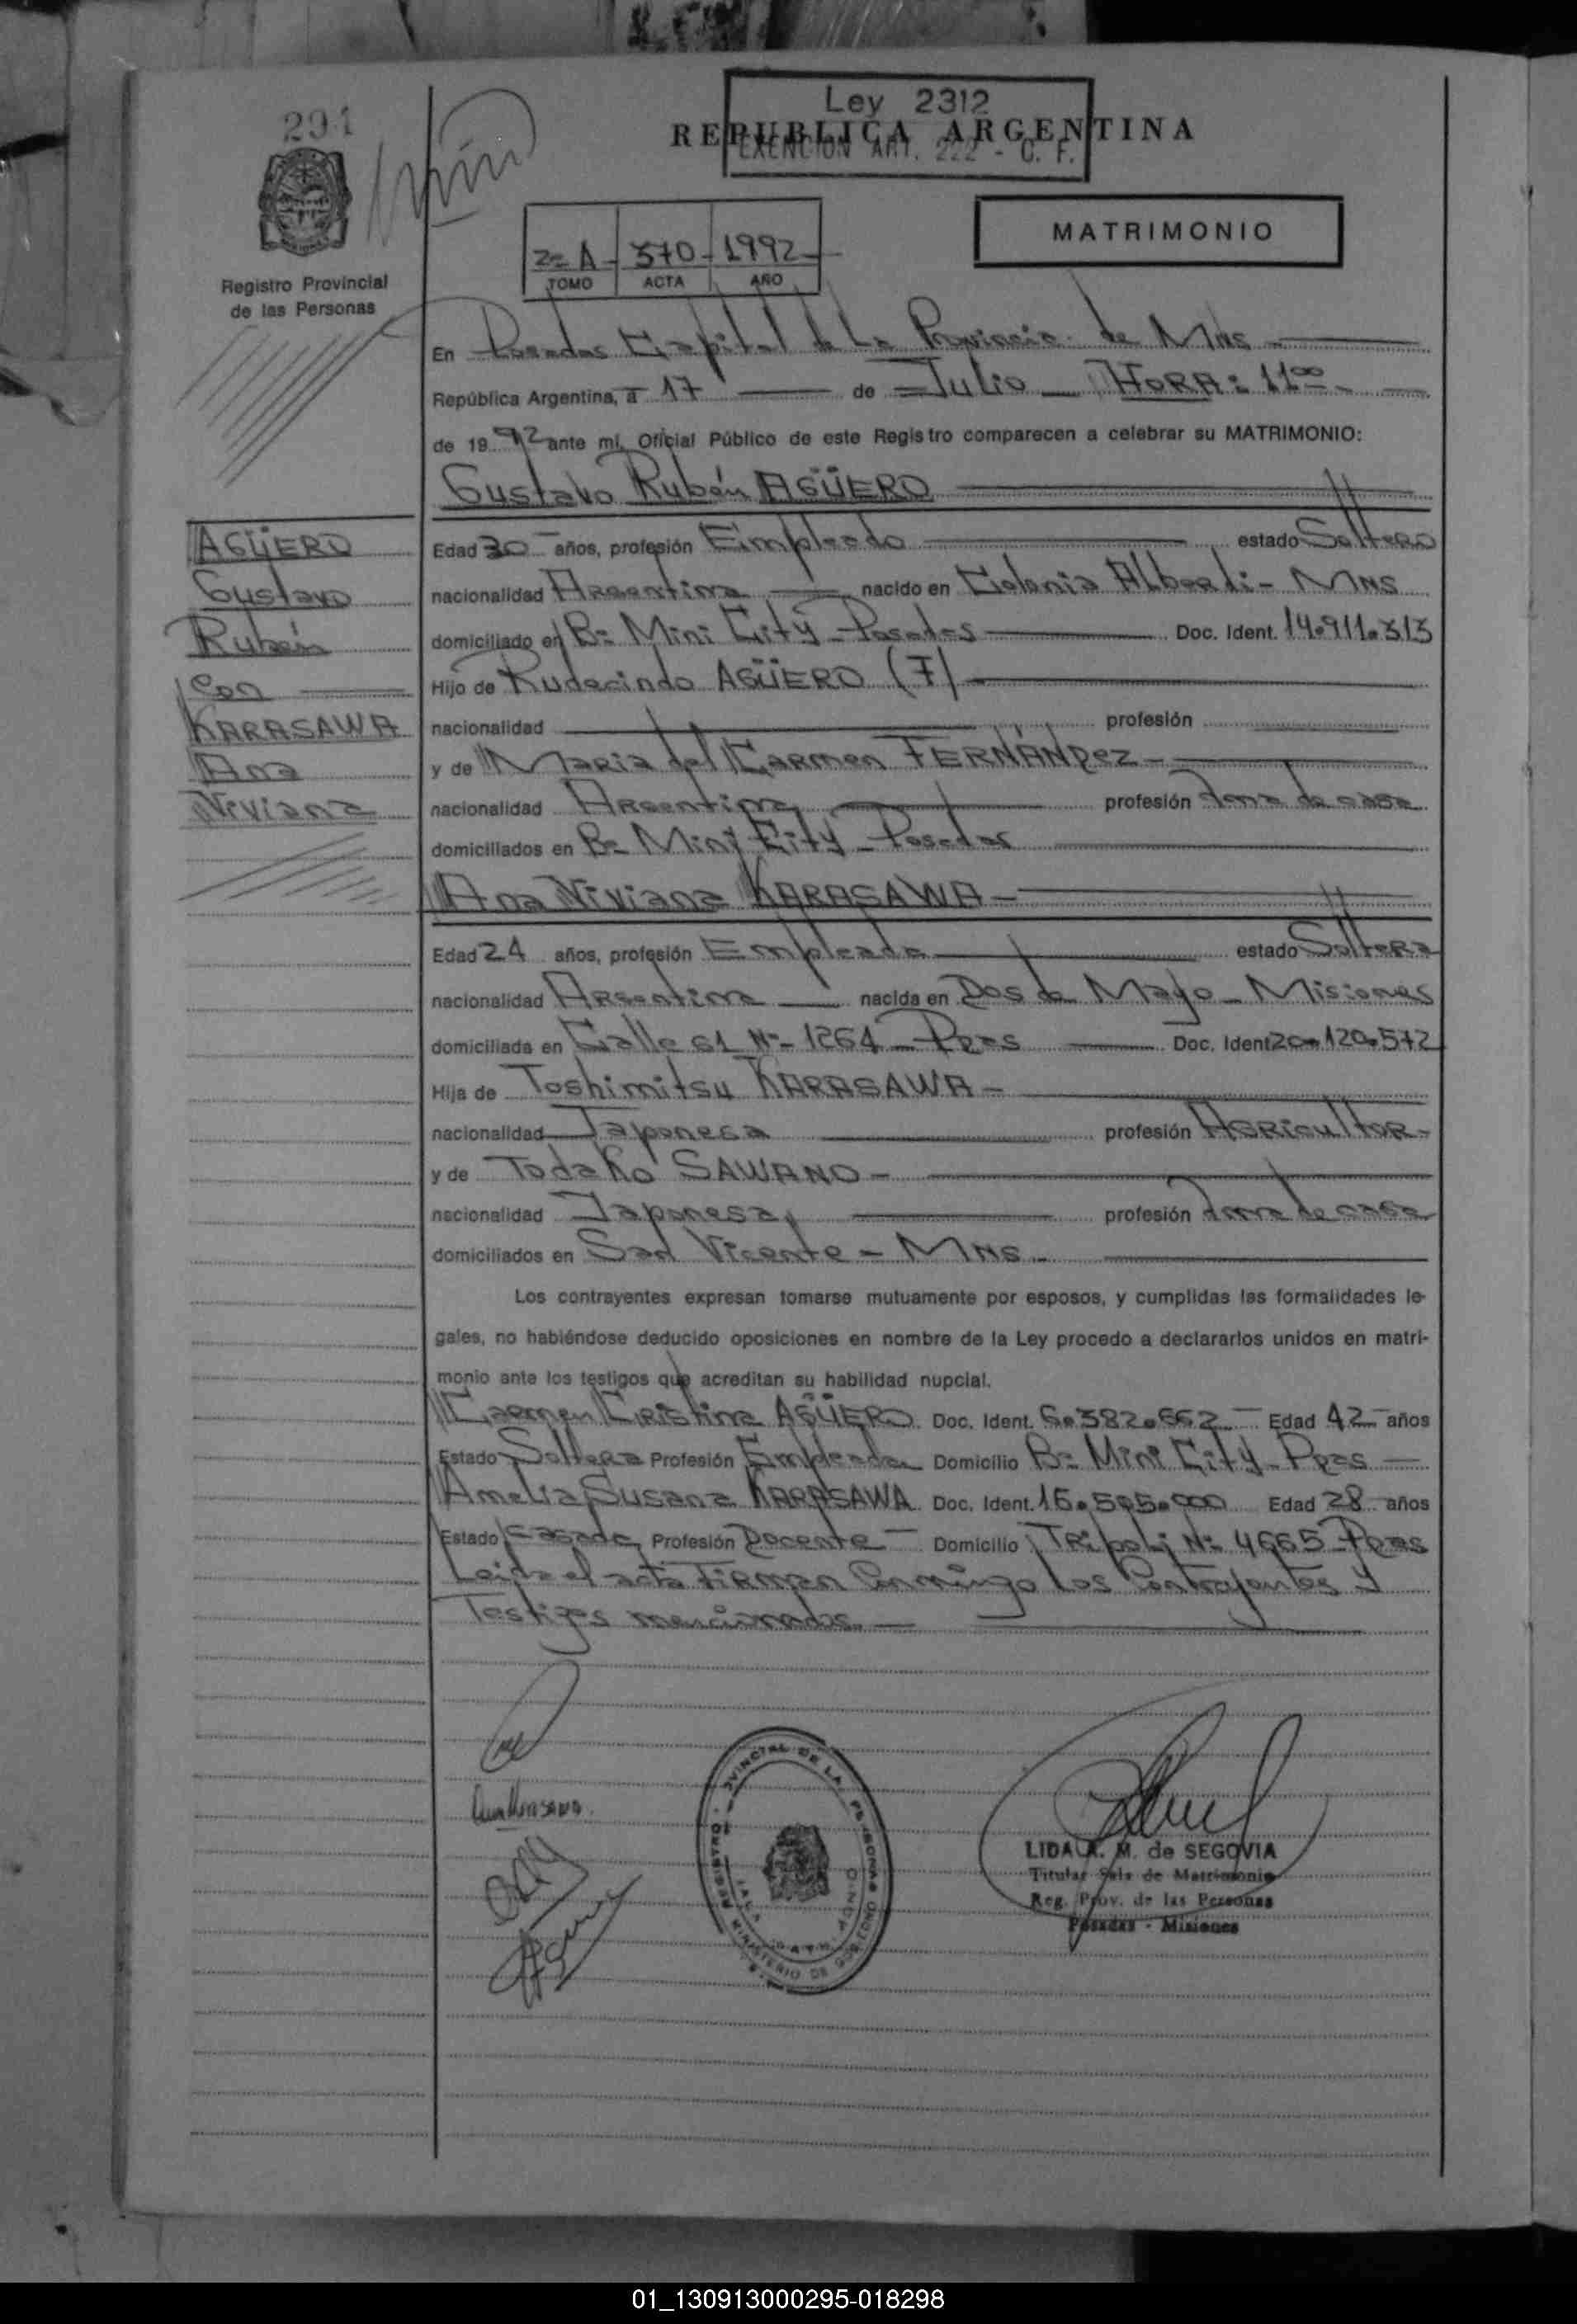 291
Ley 2312
REPUBLICA ARGENTINA
EXENCION ART. 222 - C. F.
MATRIMONIO
2º A - 370 - 1992
TOMO ACTA AÑO
Registro Provincial
de las Personas
En Posadas Capital de La Provincia de Mns
República Argentina, a 17 de Julio HORA: 11ºº
de 1992 ante mí, Oficial Público de este Registro comparecen a celebrar su MATRIMONIO:
Gustavo Rubén AGÜERO
AGÜERO
Gustavo
Rubén
Con
KARASAWA
Ana
Viviana
Edad 30 años, profesión Empleado estado Soltero
nacionalidad Argentina nacido en Colonia Alberdi - Mns
domiciliado en Bº Mini City - Posadas Doc. Ident. 14.911.313
Hijo de Rudecindo AGÜERO (F)
nacionalidad profesión
y de Maria del Carmen FERNÁNDEZ
nacionalidad Argentina profesión Ama de casa
domiciliados en Bº Mini City - Posadas
Ana Viviana KARASAWA
Edad 24 años, profesión Empleada estado Soltera
nacionalidad Argentina nacida en Dos de Mayo - Misiones
domiciliada en Calle 61 Nº 1264 - Pdas Doc. Ident 20.120.572
Hija de Toshimitsu KARASAWA
nacionalidad Japonesa profesión Agricultor
y de Todako SAWANO
nacionalidad Japonesa profesión Ama de casa
domiciliados en San Vicente - Mns
Los contrayentes expresan tomarse mutuamente por esposos, y cumplidas las formalidades le-
gales, no habiéndose deducido oposiciones en nombre de la Ley procedo a declararlos unidos en matri-
monio ante los testigos que acreditan su habilidad nupcial.
Carmen Cristina AGÜERO Doc. Ident. 6.382.662 Edad 42 años
Estado Soltera Profesión Empleada Domicilio Bº Mini City - Pdas
Amelia Susana KARASAWA Doc. Ident. 16.595.000 Edad 28 años
Estado Casada Profesión Docente Domicilio Tripoli Nº 4665 - Pdas
Leida el acta Firman Conmigo Los Contrayentes y
Testigos mencionados.
LIDA A. M. de SEGOVIA
Titular Sala de Matrimonio
Reg. Prov. de las Personas
Posadas - Misiones
01_130913000295-018298